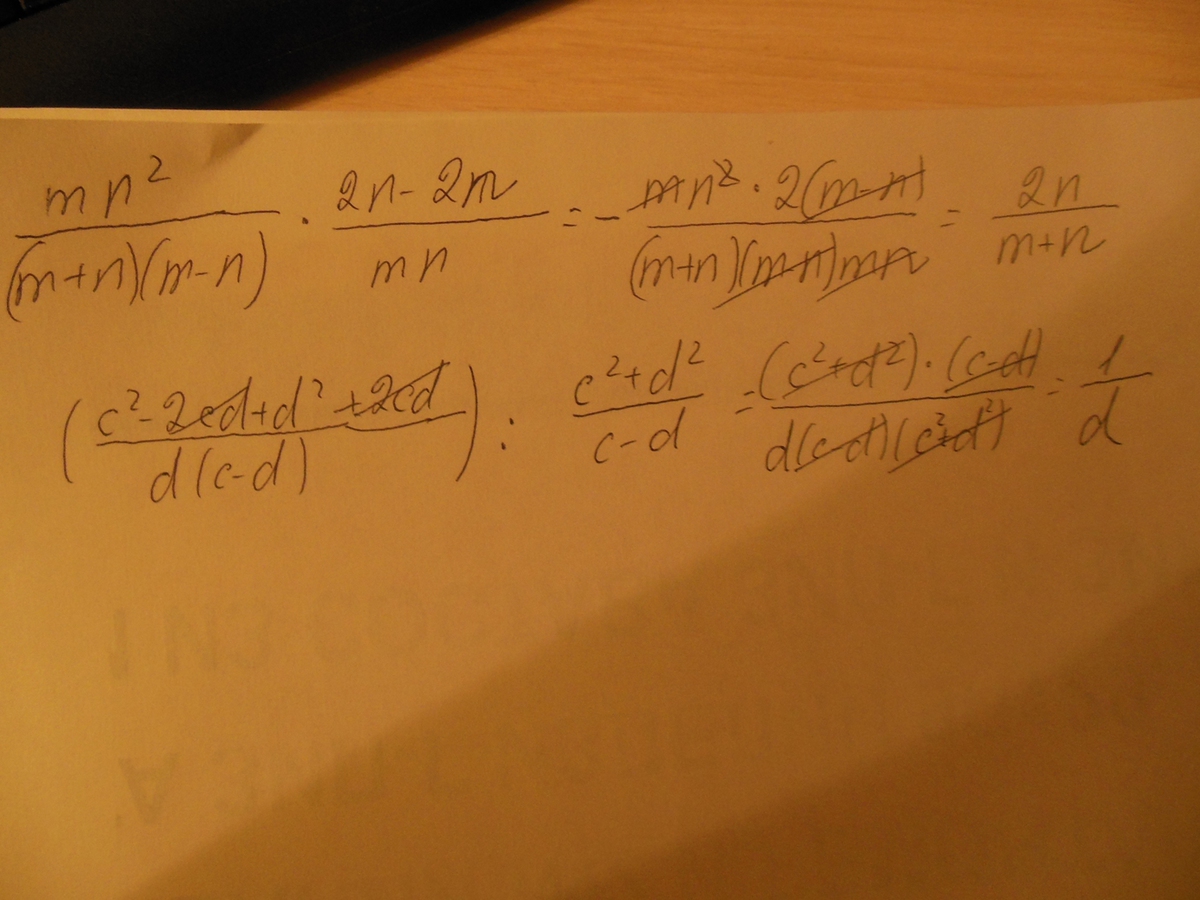 mn²/((m+n)(m-n)) · (2n-2m)/(mn) = -(mn² · 2(m-n))/((m+n)(m-n)mn) = 2n/(m+n)
((c²-2cd+d²+2cd)/(d(c-d))) : (c²+d²)/(c-d) = ((c²+d²)·(c-d))/(d(c-d)(c²+d²)) = 1/d